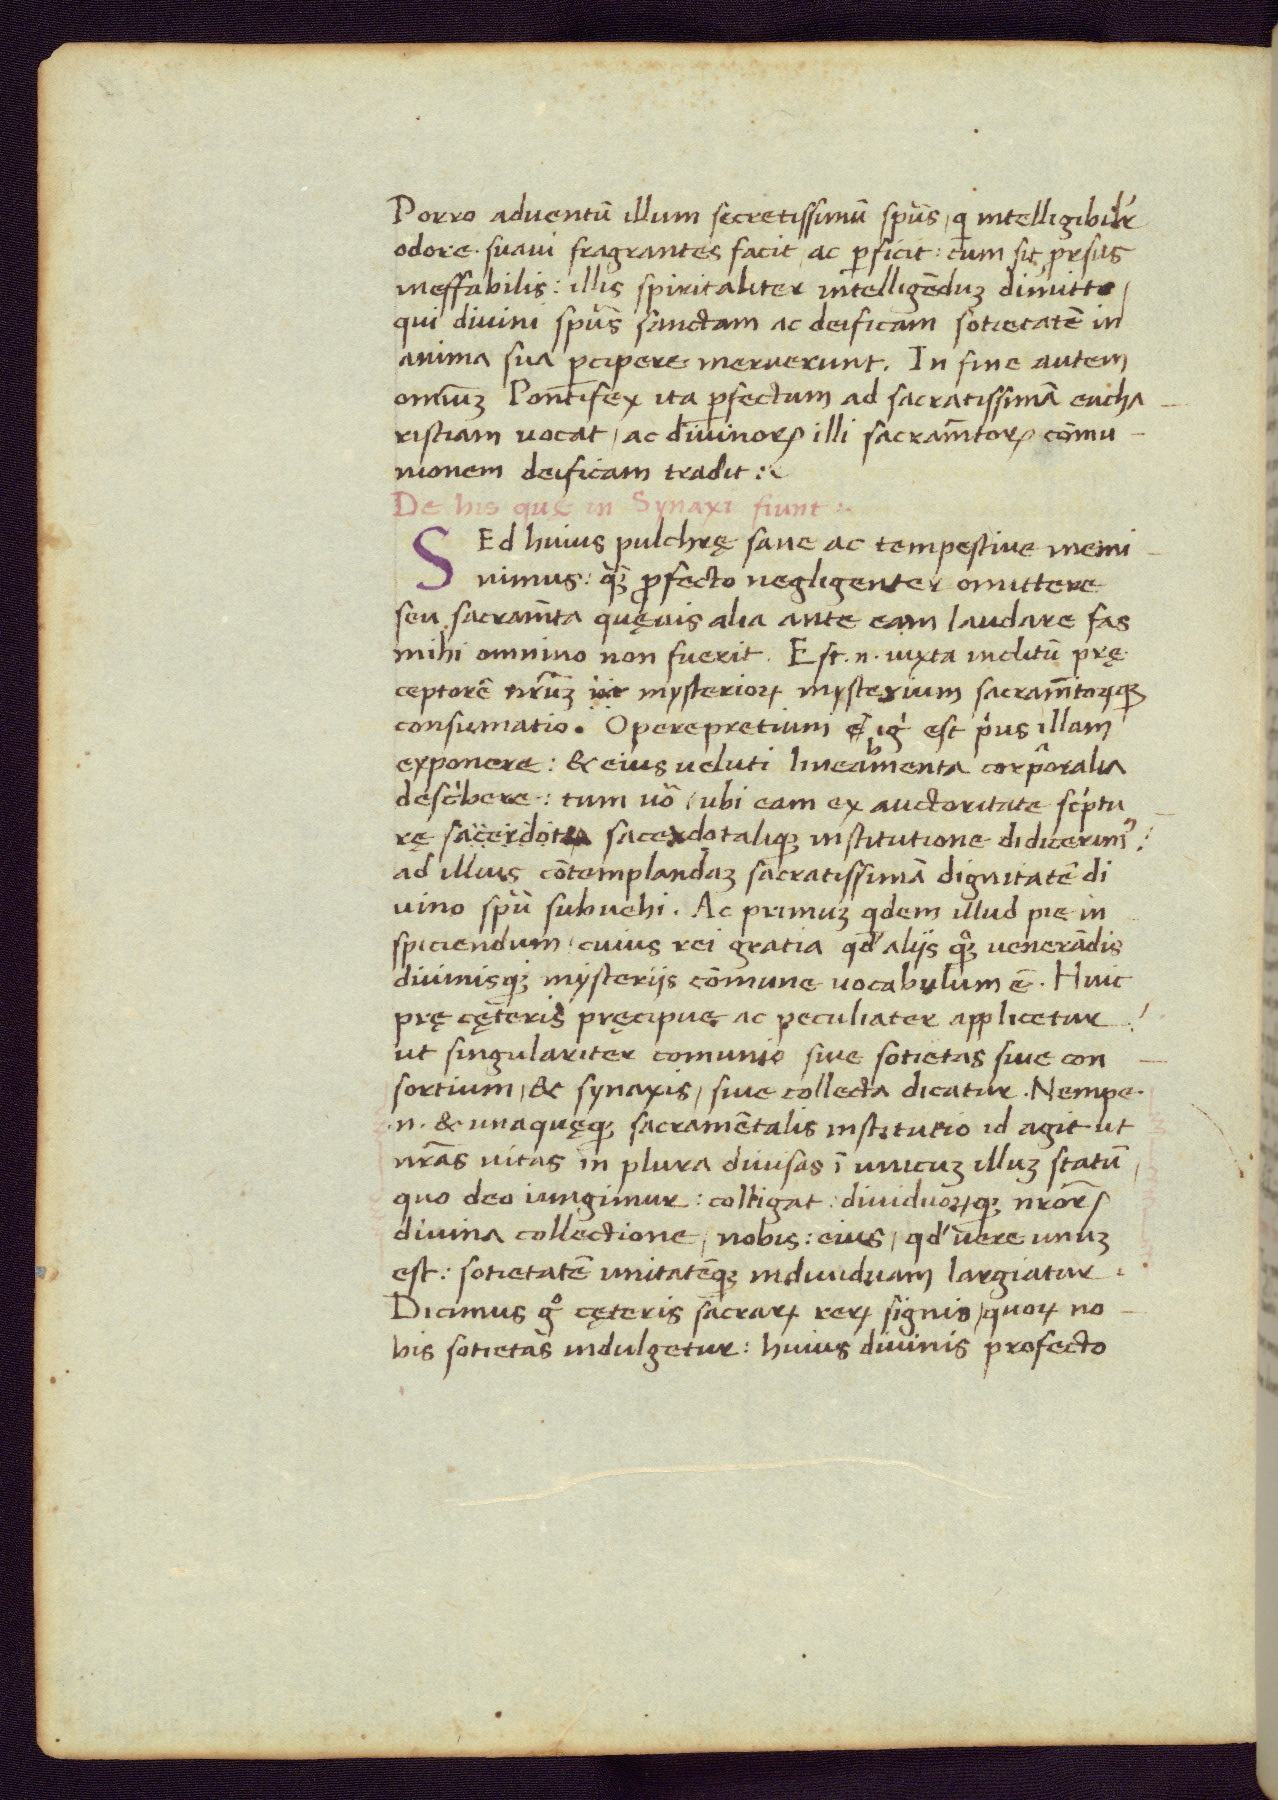 Porro aduentū illum secretissimū sp̄us, q̄ intelligibilr̄
odore suaui fragrantes facit, ac p̄ficit: cum sit p̄rsus
ineffabilis: illis spiritaliter intelligēduȝ dimitto,
qui diuini sp̄us sanctam ac deificam sotietatē in
anima sua p̄cipere meruerunt. In fine autem
omīuȝ Pontifex ita p̄fectum ad sacratissimā eucha-
ristiam uocat, ac diuinoꝝ illi sacram̄toꝝ cōmu-
nionem deificam tradit:
De his quę in Synaxi fiunt:
SEd huius pulchrę sane ac tempestiue memi-
nimus: profecto negligenter omittere
seu sacram̄ta quęuis alia ante eam laudare fas
mihi omnino non fuerit. Est .n. iuxta inclitū prę
ceptorē nr̄uȝ mysterioꝝ mysterium sacram̄toꝝqȝ
consumatio. Operepretium igr̄ est p̓us illam
exponere: & eius ueluti lineamenta corporalia
desc̓bere: tum uō, ubi eam ex auctoritate sc̓ptu
rę sacerdotaliqȝ institutione didicerimꝰ:
ad illius cōtemplandaȝ sacratissimā dignitatē di
uino sp̄u subuehi. Ac primuȝ qdem illud pie in
spiciendum, cuius rei gratia qd' alijs qȝ uenerādis
diuinisqȝ mysterijs cōmune uocabulum ē. Huic
prę cęteris pręcipue ac peculiater applicetur:
ut singulariter comunio siue sotietas siue con-
sortium, & synaxis, siue collecta dicatur. Nempe
.n. & unaquęqȝ sacramētalis institutio id agit ut
nr̄as uitas in plura diuisas ī unicuȝ illuȝ statū,
quo deo iungimur: colligat: diuiduoꝝqȝ nr̄oꝝ
diuina collectione, nobis: eius, qd' uere unuȝ
est: sotietatē unitatēqȝ indiuiduam largiatur.
Dicimus gͦ cęteris sacraꝝ reꝝ signis, quoꝝ no-
bis sotietas indulgetur: huius diuinis profecto